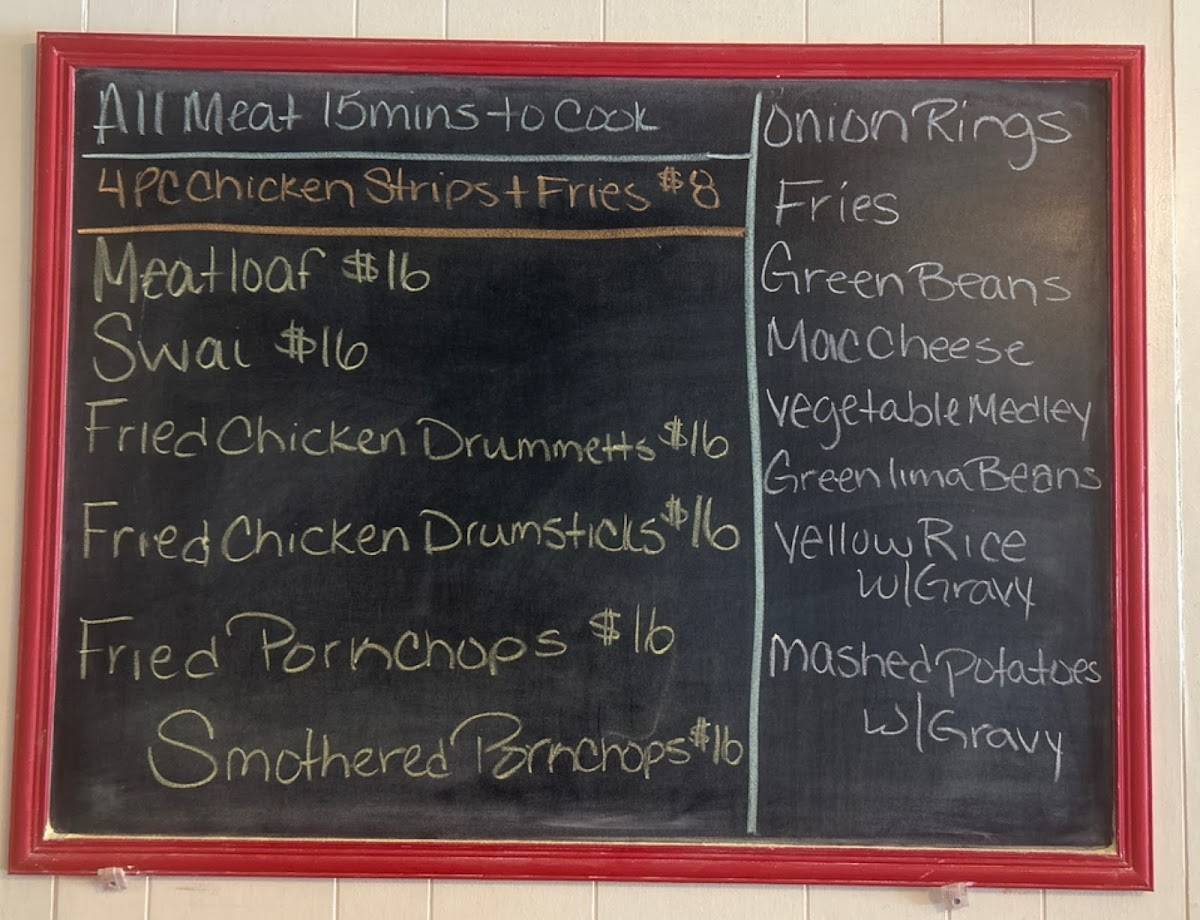 All Meat 15mins to Cook
4PC Chicken Strips + Fries $8
Meatloaf $16
Swai $16
Fried Chicken Drummetts $16
Fried Chicken Drumsticks $16
Fried Pornchops $16
Smothered Pornchops $16
Onion Rings
Fries
Green Beans
Mac Cheese
Vegetable Medley
Green lima Beans
Yellow Rice
W/Gravy
Mashed Potatoes
W/Gravy